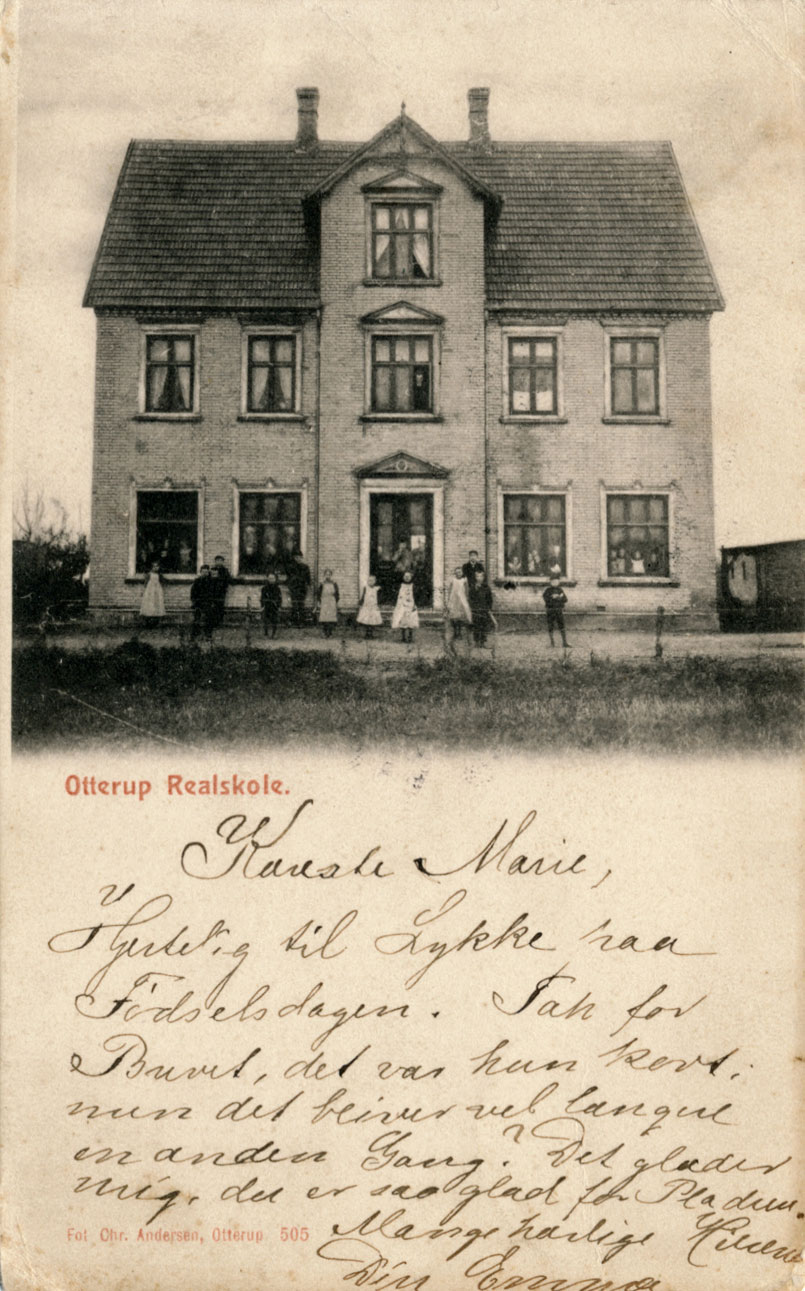 Otterup Realskole.
Kæreste Marie,
Hjertelig til Lykke paa
Födselsdagen. Tak for
Brevet, det var kun kort,
men det bliver vel længere
en anden Gang? Det glæder
mig, du er saa glad for Pladsen.
Mange kærlige Hilsener
Din Emma
Fot Chr. Andersen, Otterup 505